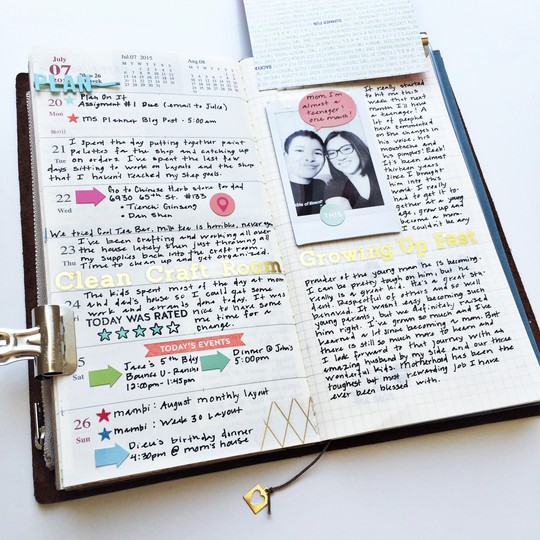 July
07
Jul.07 2015
Aug.08
PLAN
20
Mon
Plan On It
Assignment #1 Due (email to Julie)
MS Planner Blog Post - 5:00am
21
Tue
I spent the day putting together paint
palettes for the shop and catching up
on orders. I've spent the last few
days sitting to work on layouts and the shop
that I haven't reached my step goals.
22
Wed
Go to Chinese Herb store for dad
6930 65th St. #133
• Tienchi Ginseng
• Dan Shen
We tried Cool Tea Bar. Milk tea is horrible, never again
23
Thu
I've been crafting and working all over
the house lately then just throwing all
my supplies back into the craft room.
Time to clean up and get organized.
Clean Craft Room
24
The kids spent most of the day at mom
and dad's house so I could get some
work and errands done today. It was
nice to have some
me time for a
change.
TODAY WAS RATED
TODAY'S EVENTS
25
Sat
Jaxe's 5th Bday
Bounce U - Rancho
12:00pm - 1:45pm
Dinner @ John's
5:00pm
26
Sun
mambi: August monthly layout
mambi: Week 30 Layout
Dieu's birthday dinner
4:30pm @ mom's house
Mom, I'm
almost a
teenager!
one month!
THIS
It really started
to hit me this
week that next
month I'll have
a teenager! A
lot of people
have commented
on the changes in
his voice, his
moustache and
his pimples! Eeek!
It's been almost
thirteen years
since I brought
him into this
world. I really
had to get it to-
gether at a young
age, grow up and
become a mom.
I couldn't be any
Growing Up Fast
prouder of the young man he is becoming.
I can be pretty tough on him, but he
really is a great kid. He's a great stu-
dent. Respectful of others and so well
behaved. It wasn't easy becoming such
young parents, but we definitely raised
him right. I've grown so much and I've
learned a lot since becoming a mom. But
there is still so much more to learn and
I look forward to that journey with an
amazing husband by my side and our three
wonderful kids. Motherhood has been the
toughest but most rewarding job I have
ever been blessed with.